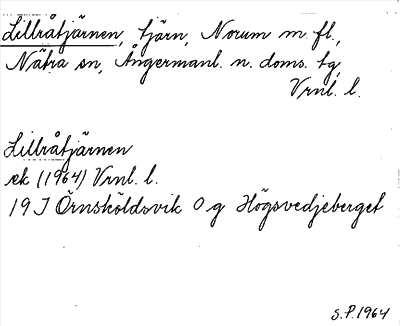 Lillråtjärnen, tjärn, Norum m. fl.,
Nätra sn, Ångermanl. n. doms. tg,
Vrnl. l.
Lillråtjärnen
ek (1964) Vrnl. l.
19 J Örnsköldsvik O g Högsvedjeberget
S.P. 1964